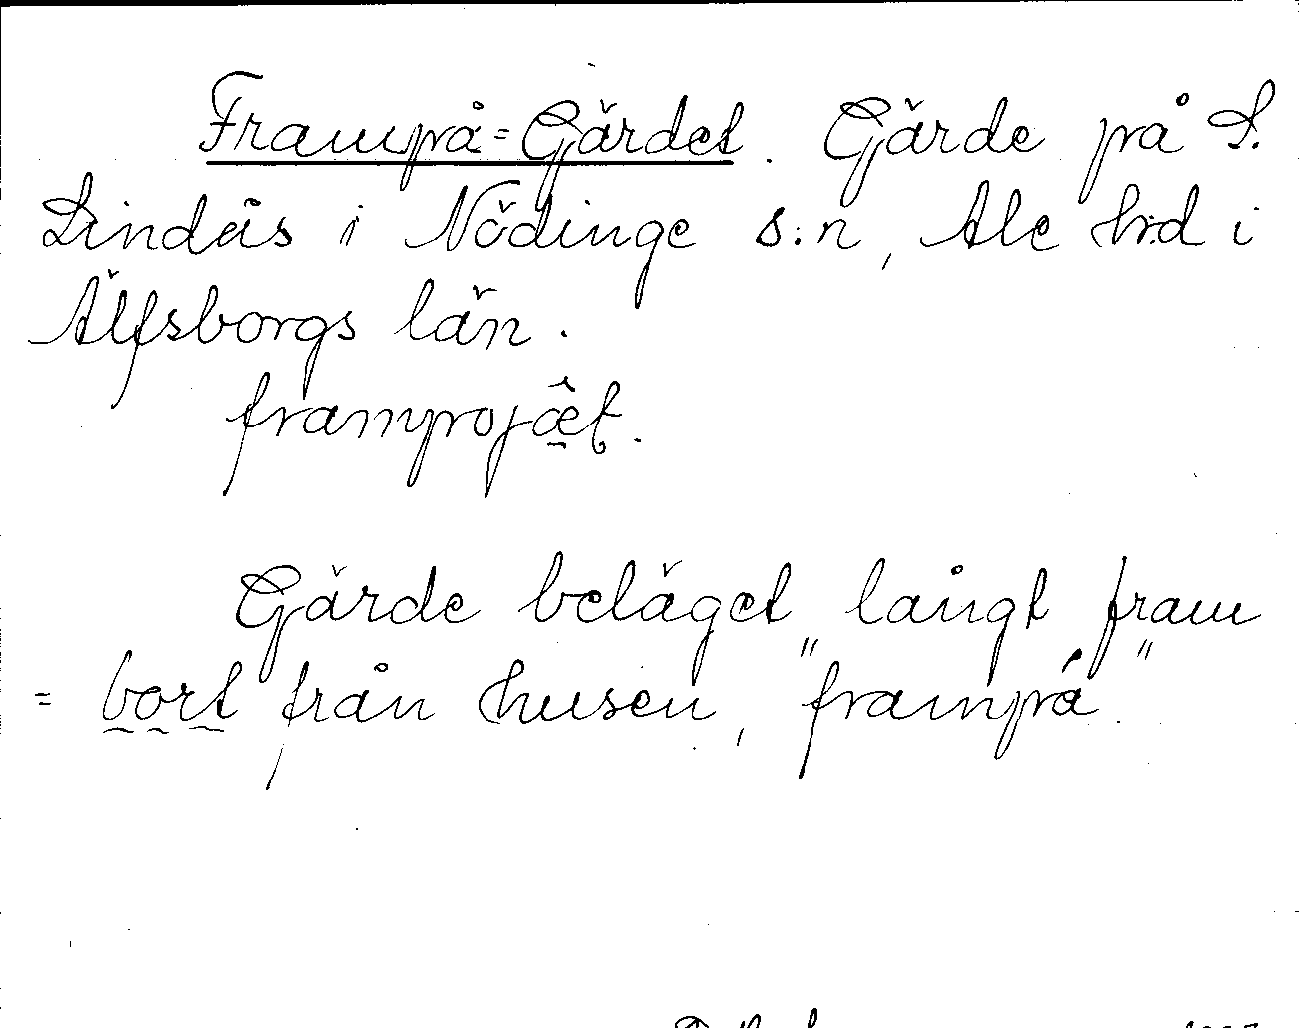 Frampå=Gärdet. Gärde på S.
Lindås i Nödinge s:n, Ale h:d i
Älfsborgs län.
Gärde beläget långt fram
= bort från husen, "frampå".